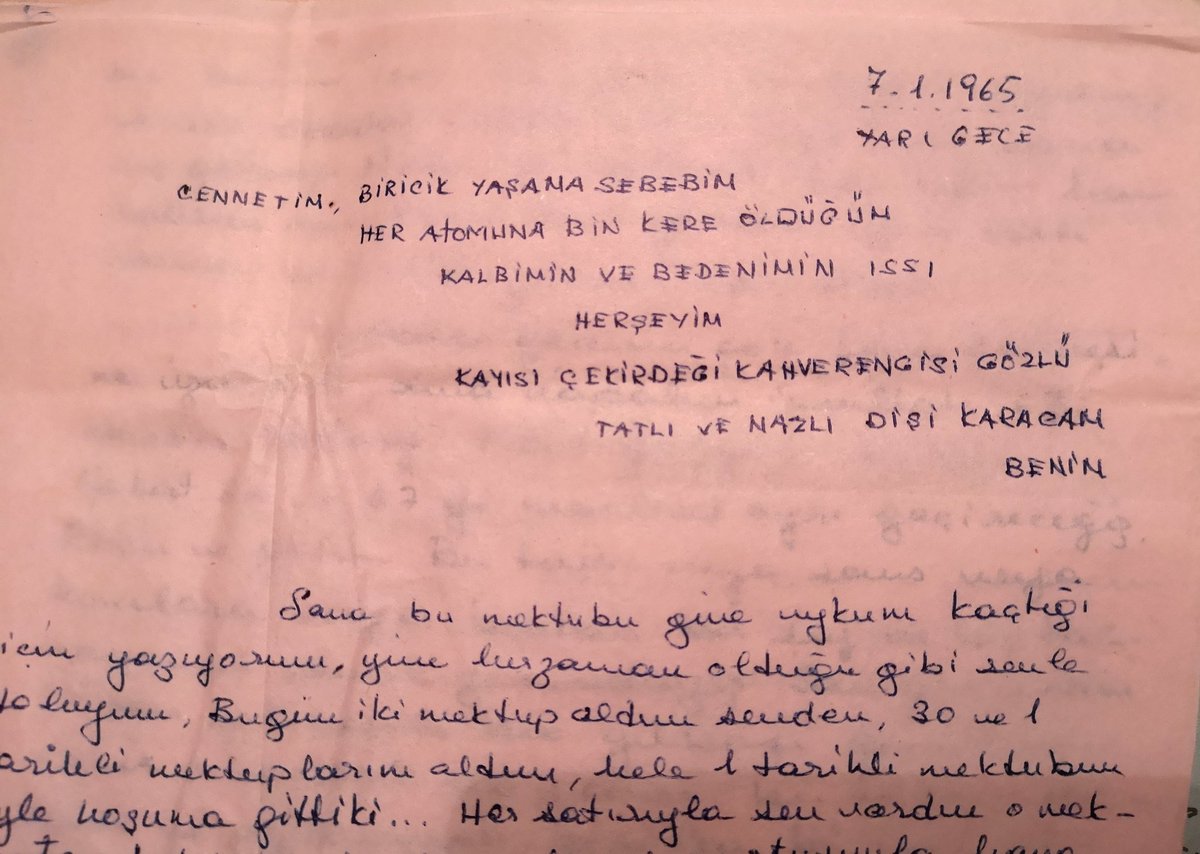 7.1.1965
YARI GECE
CENNETİM., BİRİCİK YAŞAMA SEBEBİM
HER ATOMUNA BİN KERE ÖLDÜĞÜM
KALBİMİN VE BEDENİMİN ISSI
HERŞEYİM
KAYISI ÇEKİRDEĞİ KAHVERENGİSİ GÖZLÜ
TATLI VE NAZLI DİŞİ KARACAM
BENİM
Sana bu mektubu gine uykum kaçtığı
için yazıyorum, yine herzaman olduğu gibi senle
doluyum, Bugün iki mektup aldım senden, 30 ve 1
arihli mektuplarını aldım, hele 1 tarihli mektubun
yle hoşuma gittiki... Her satırıyla sen vardın o mek-